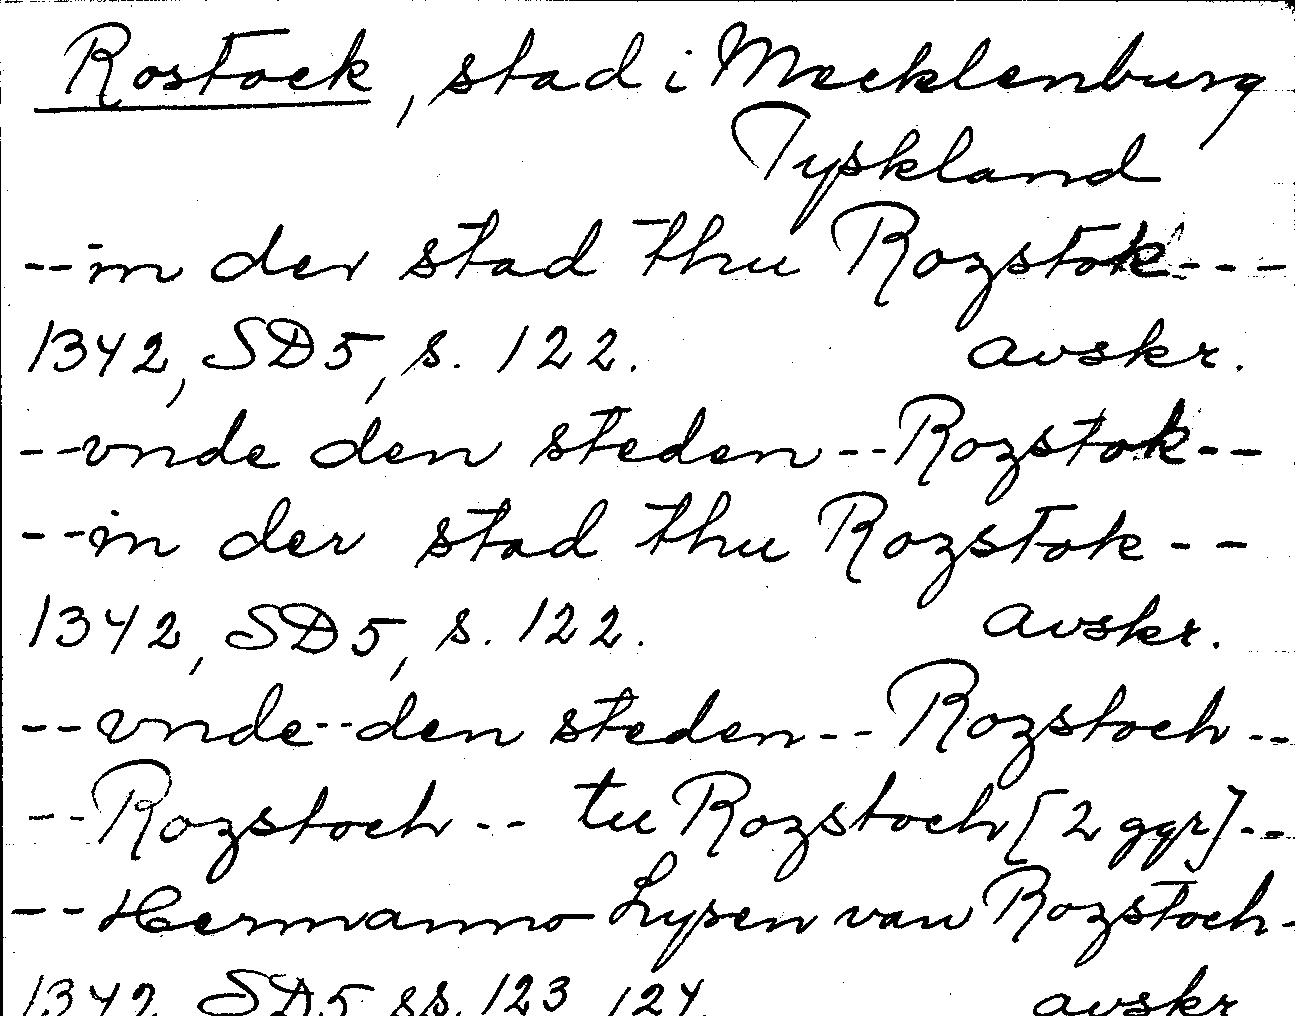 Rostock, stad i Mecklenburg
Tyskland
--in der stad thu Rozstok---
1342, SD5, s. 122. avskr.
--vnde den steden--Rozstok--
--in der stad thu Rozstok--
1342, SD5, s. 122. avskr.
--vnde--den steden--Rozstoch--
--Rozstoch-- tu Rozstoch [2 ggr]--
--Hermanno Lysen van Rozstoch-
1342 SD5 ss. 123 124. avskr